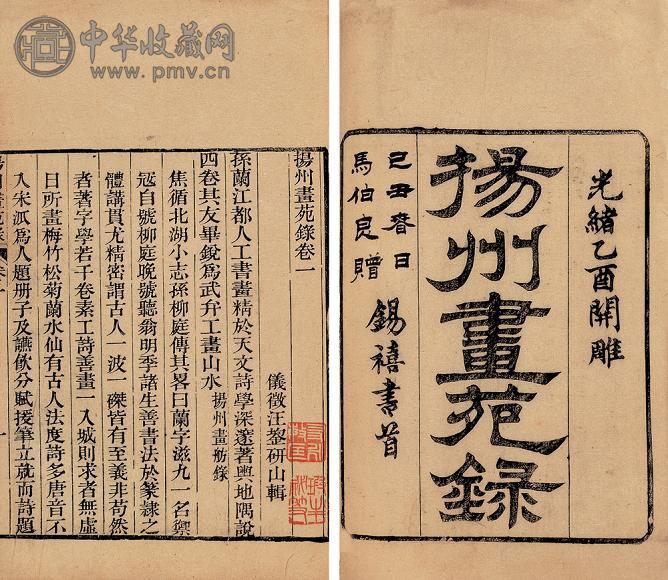 中华收藏网
www.pmv.cn
光緒乙酉開雕
揚州畫苑錄
錫禧書首
己丑春日
馬伯良贈
揚州畫苑錄卷一
儀徵汪鋆研山輯
孫蘭江都人工書畫精於天文詩學深邃著輿地隅說
四卷其友畢銳為武弁工畫山水揚州畫舫錄
焦循北湖小志孫柳庭傳其畧曰蘭字滋九一名禦
寇自號柳庭晚號聽翁明季諸生善書法於篆隸之
體講貫尤精密謂古人一波一磔皆有至義非苟然
者著字學若干卷素工詩善畫一入城則求者無虛
日所畫梅竹松菊蘭水仙有古人法度詩多唐音不
入宋派為人題册子及讌飲分賦援筆立就而詩題